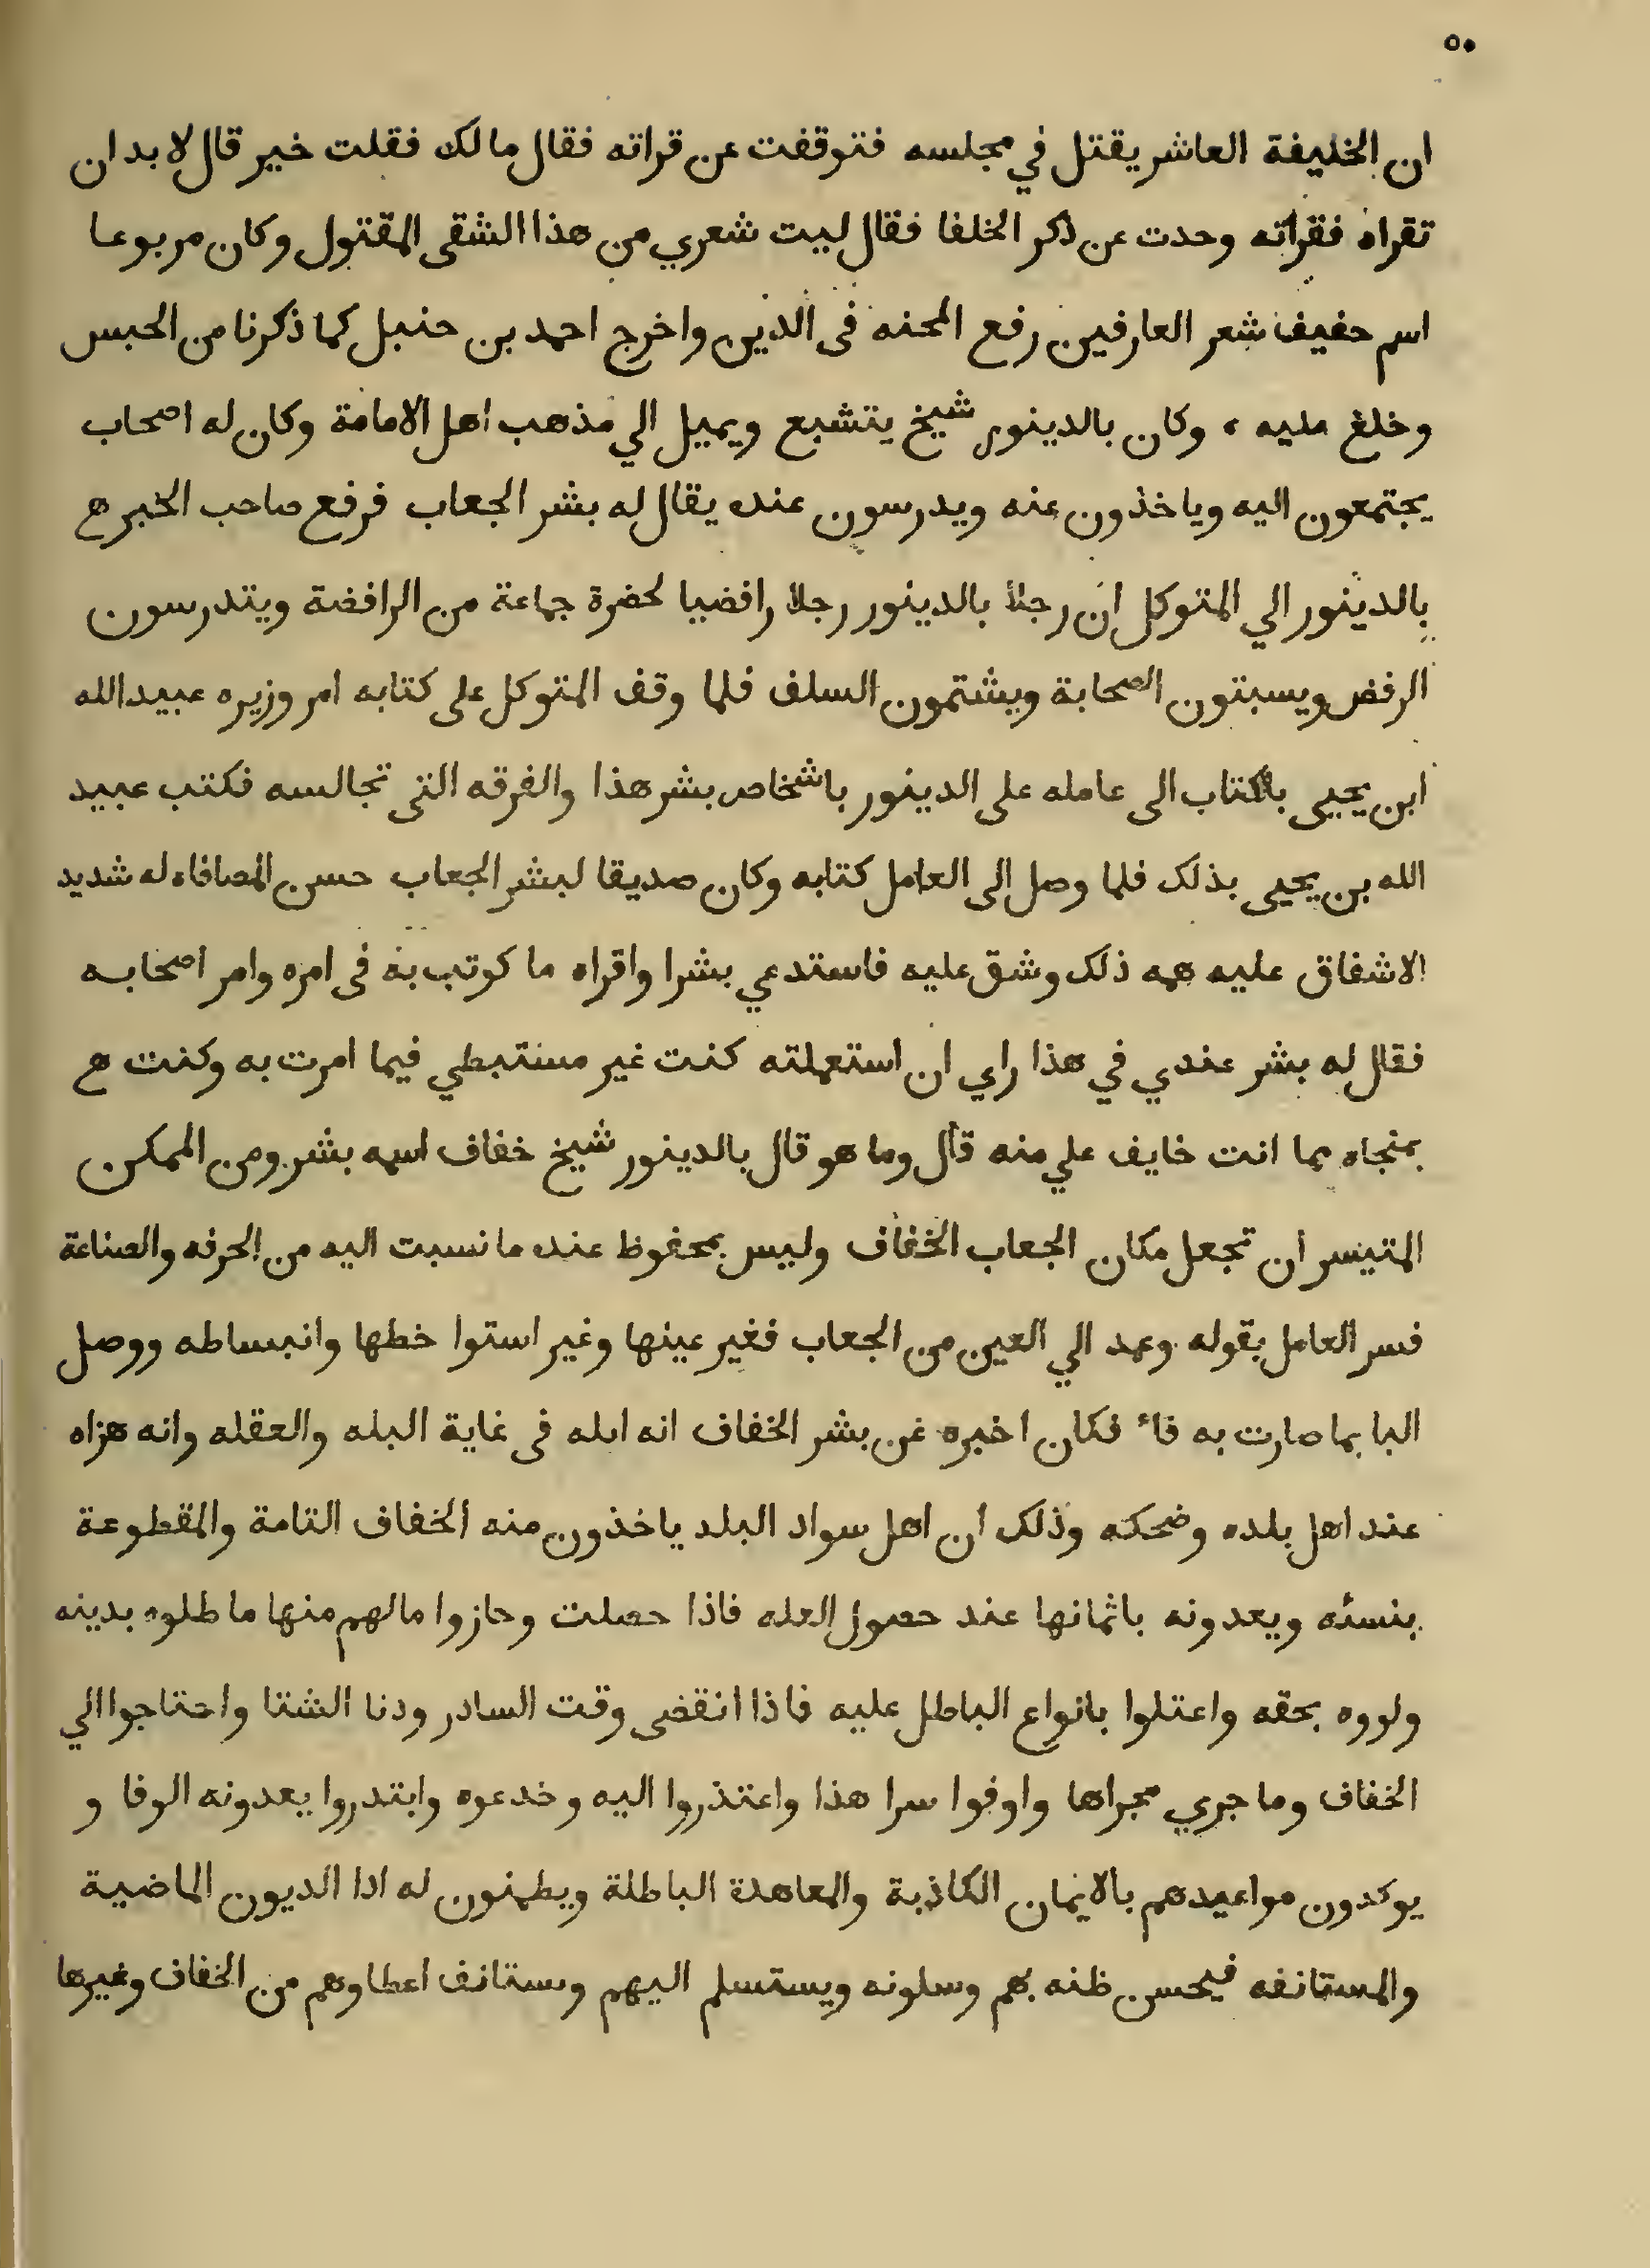 ٥٠
ان الخليفة العاشر يقتل في مجلسه فتوقفت عن قراته فقال مالك فقلت خير قال لا بد ان
تقراه فقراته وحدت عن ذكر الخلفا فقال ليت شعري من هذا الشقى المقتول وكان مربوعا
اسم حفيف شعر العارفين رفع المحنه فى الدين واخرج احمد بن حنبل كما ذكرنا من الحبس
وخلغ عليه ، وكان بالدينور شيخ يتشيع ويميل الي مذهب اهل الامامة وكان له اصحاب
يجتمعون اليه وياخذون عنه ويدرسون عنده يقال له بشر الجعاب فرفع صاحب الخبر ح
بالدينور الي المتوكل ان رجلا بالدينور رجلا رافضيا لحضرة جماعة من الرافضة ويتدرسون
الرفض ويسبتون الصحابة ويشتمون السلف فلما وقف المتوكل على كتابه امر وزيره عبيد الله
ابن يحيى بالكتاب الى عامله على الدينور باشخاص بشر هذا والفرقه التى تجالسه فكتب عبيد
الله بن يحيى بذلك فلما وصل الى العامل كتابه وكان صديقا لبشر الجعاب حسن المصافاه له شديد
الاشفاق عليه همه ذلك وشق عليه فاستدعي بشرا واقراه ما كوتب به فى امره وامر اصحابه
فقال له بشر عندي في هذا راي ان استعملته كنت غير مستبطي فيما امرت به وكنت ح
بمنجاه مما انت خايف علي منه قال وما هو قال بالدينور شيخ خفاف اسمه بشر ومن الممكن
المتيسر ان تجعل مكان الجعاب الخفاف وليس بمحفوظ عنده ما نسبت اليه من الحرفه والصناعة
فسر العامل بقوله وعمد الي العين من الجعاب فغير عينها وغير استوا خطها وانبساطه ووصل
البا بما صارت به فاء فكان اخبره عن بشر الخفاف انه ابله فى غاية البله والعقله وانه هزاه
عند اهل بلده وضحكه وذلك ان اهل سواد البلد ياخذون منه الخفاف التامة والمقطوعة
بنسئه ويعدونه باثمانها عند حصول العله فاذا حصلت وحازوا مالهم منها ماطلوه بدينه
ولووه بحقه واعتلوا بانواع الباطل عليه فاذا انقضى وقت السادر ودنا الشتا واحتاجوا الي
الخفاف وما جري مجراها واوفوا سرا هذا واعتذروا اليه وخدعوه وابتدروا يعدونه الوفا و
يوكدون مواعيدهم بالايمان الكاذبة والمعاهدة الباطلة ويطمنون له ادا الديون الماضية
والمستانفه فيحسن ظنه بهم وسلونه ويستسلم اليهم وستانف اعطاوهم من الخفاف وغيرها